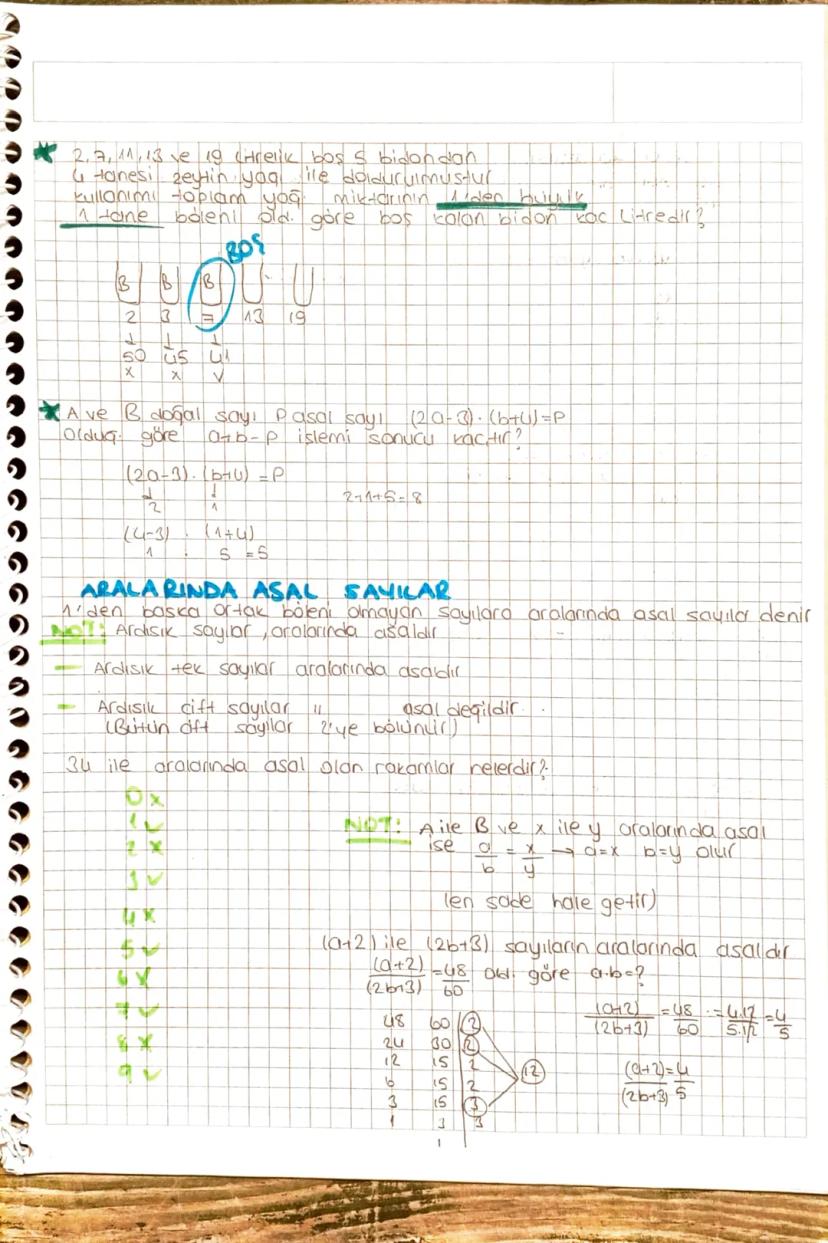 * 2, 7, 11, 13 ve 19 litrelik boş 5 bidondan
4 tanesi zeytin yağ ile doldurulmuştur
kullanımı toplam yağ miktarının 1'den büyük
1 tane böleni old. göre boş kalan bidon kaç litredir?
BOŞ
B B B
2 3 7 13 19
↓ ↓ ↓
50 45 41
x x v
* A ve B doğal sayı P asal sayı (2a-3).(b+4)=P
Olduğ. göre a+b-p işlemi sonucu kaçtır?
(2a-3).(b+4)=P
↓ ↓
2 1
2+1+5=8
(4-3) . (1+4)
1 . 5 =5
ARALARINDA ASAL SAYILAR
1'den başka ortak böleni olmayan sayılara aralarında asal sayılar denir
NOT: Ardışık sayılar, aralarında asaldır
- Ardışık tek sayılar aralarında asaldır
- Ardışık çift sayılar " asal değildir.
(Bütün çift sayılar 2'ye bölünür)
34 ile aralarında asal olan rakamlar nelerdir?
0 x
1 v
2 x
3 v
4 x
5 v
6 x
7 v
8 x
9 v
NOT: A ile B ve x ile y aralarında asal
ise a/b = x/y → a=x b=y olur
(en sade hale getir)
(a+2) ile (2b+3) sayıların aralarında asaldır
(a+2)/(2b+3) = 48/60 old. göre a.b=?
48 60 2
24 30 2
12 15 2
6 15 2
3 15 3
1 3 3
1
12
(a+2)/(2b+3) = 48/60 = 4.12/5.12 = 4/5
(a+2)/(2b+3) = 4/5